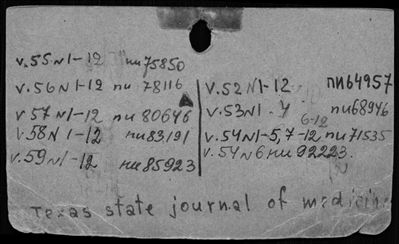 v.55 N1-12 пи75850
v.56 N1-12 пи 78116
v 57 N1-12 пи 80646
v.58 N 1-12 пи83191
v.59 N1-12 пи85923
v.52 N1-12 пи64957
v.53 N1-4 6-12 пи68946
v.54 N1-5,7-12 пи71535
v.54 N6 пи92223.
Texas state journal of medicine